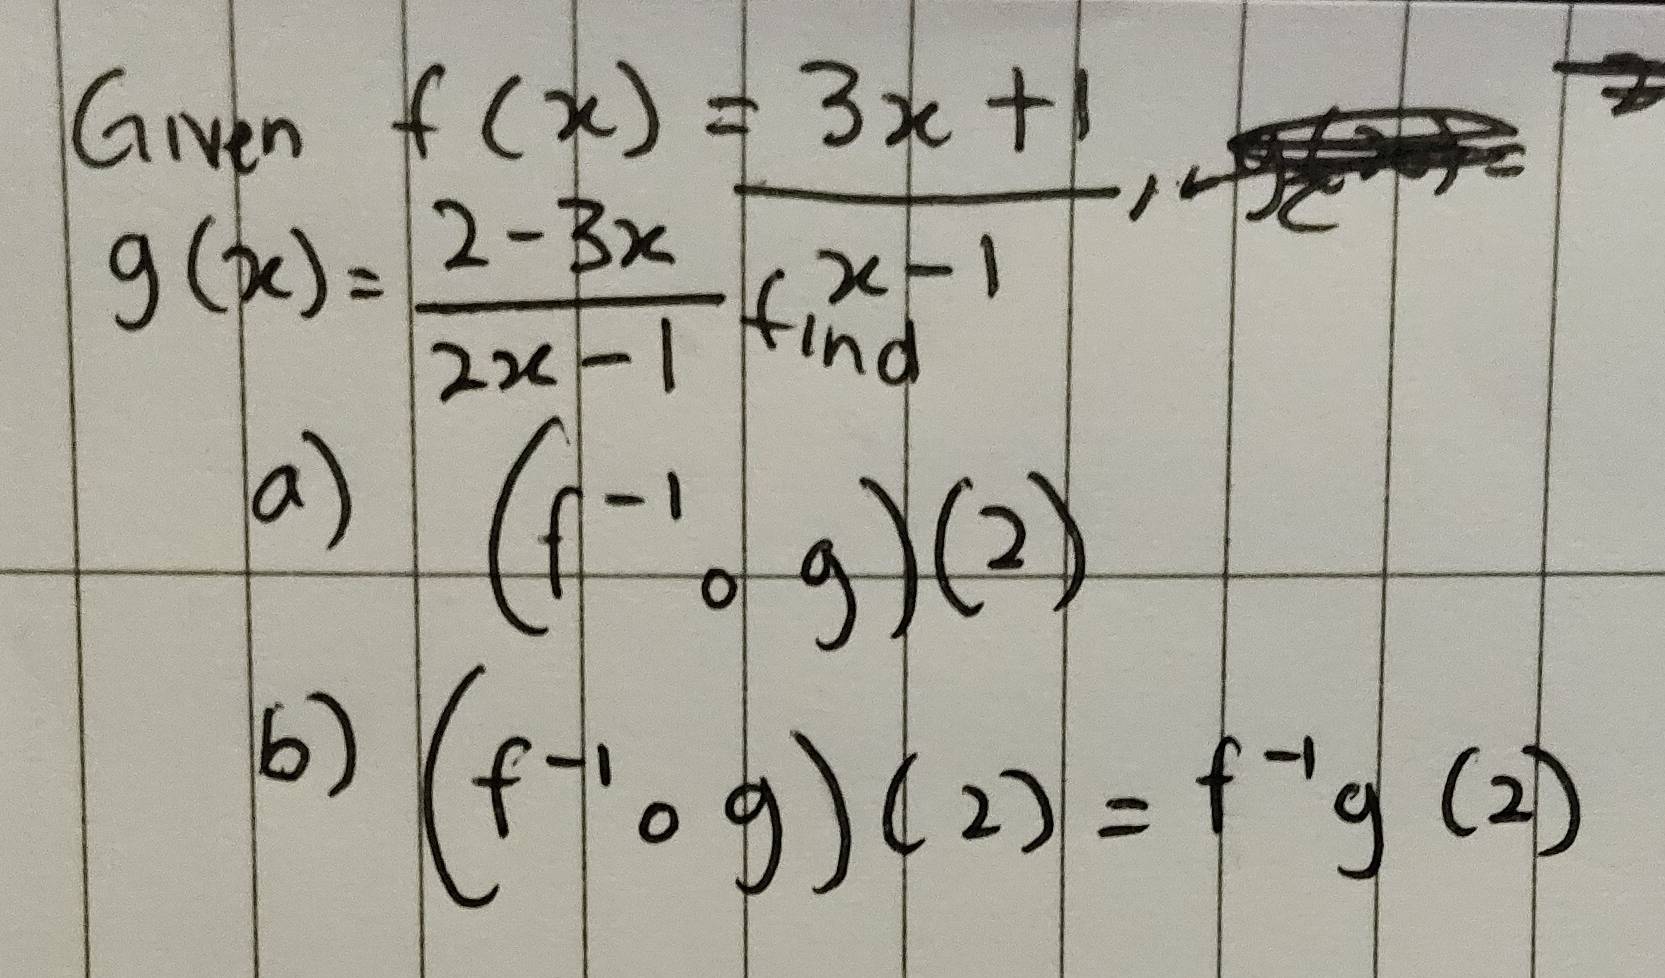 Given f(x) = 3x + 1 / x - 1 ,
g(x) = 2 - 3x / 2x - 1 find
a) (f⁻¹ ∘ g)(2)
b) (f⁻¹ ∘ g)(2) = f⁻¹ g (2)